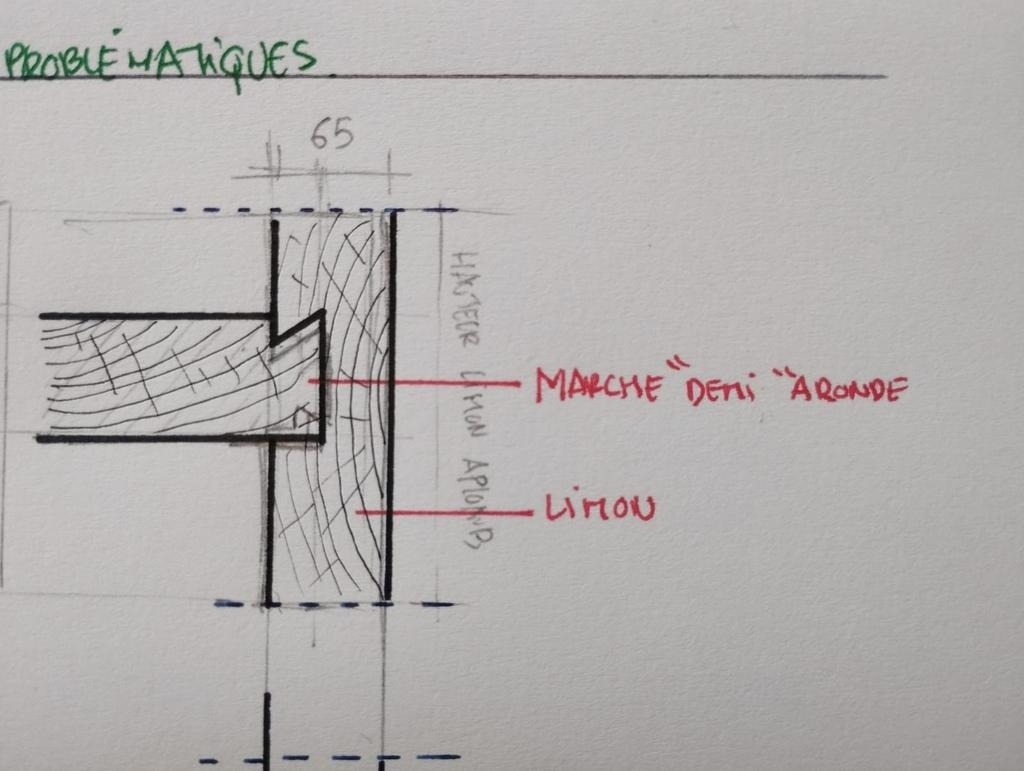 PROBLÉMATIQUES
65
HAUTEUR LIMON APLOMB
MARCHE "DEMI "ARONDE
LIMON